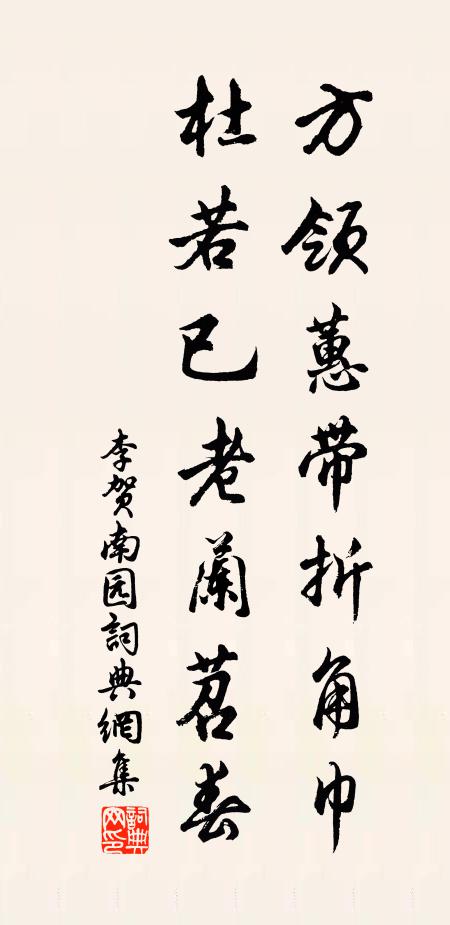 方領蕙带折角巾
杜若已老蘭苕春
李贺南园詞典網集
詞典网印